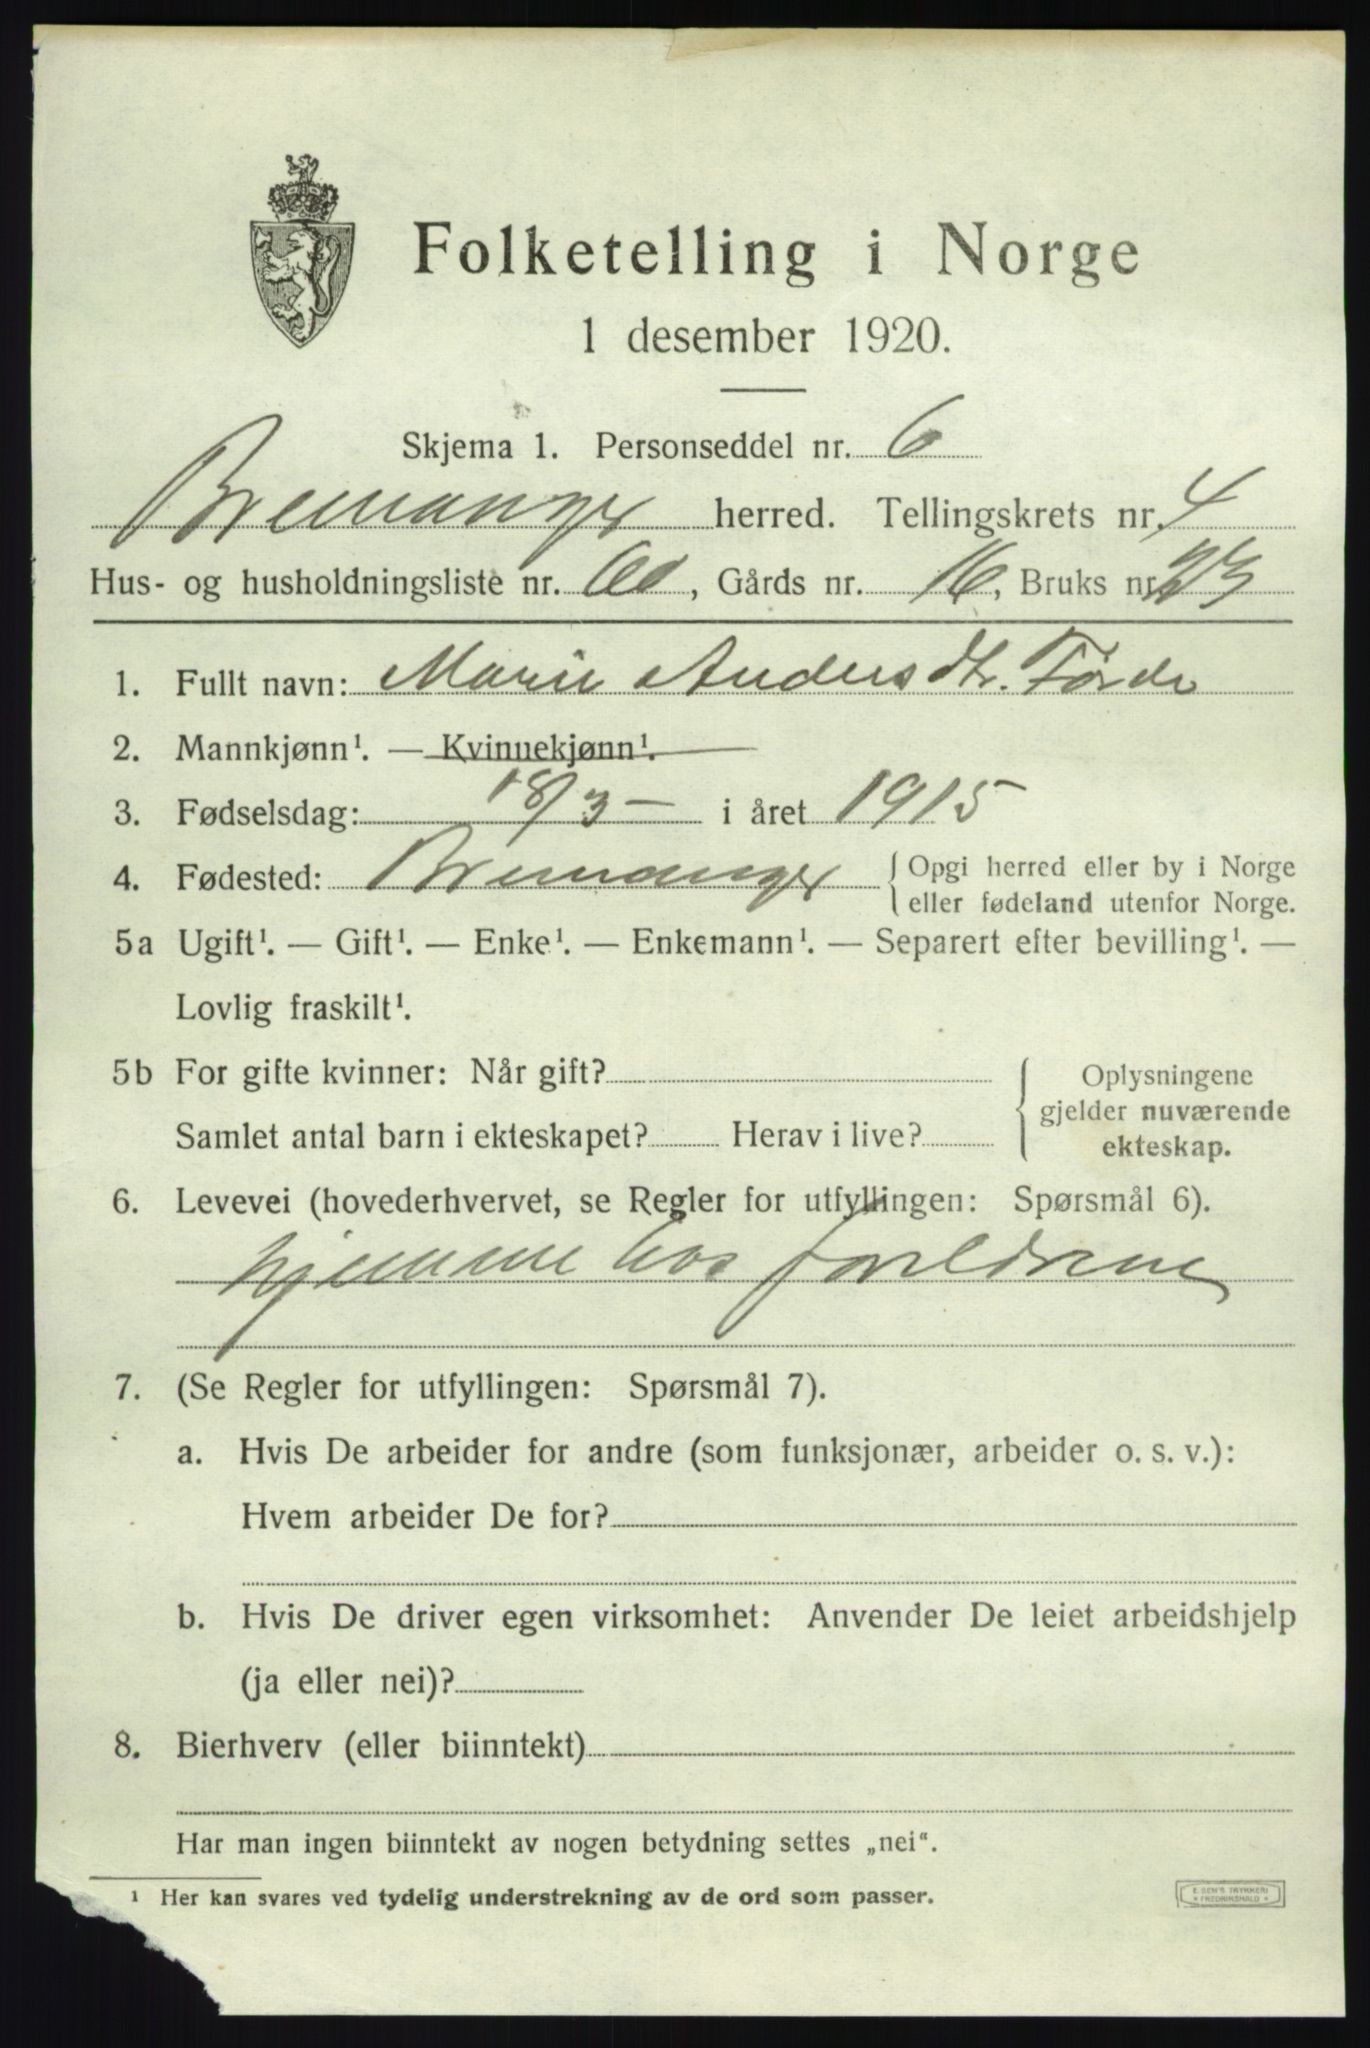 Folketelling i Norge
1 desember 1920.
Skjema 1. Personseddel nr. 6
Bremanger herred. Tellingskrets nr. 4
Hus- og husholdningsliste nr. 60, Gårds nr. 16, Bruks nr. 23
1. Fullt navn: Marie Andersdtr. Førde
2. Mannkjønn¹. — Kvinnekjønn¹.
3. Fødselsdag: 18/3 — i året 1915
4. Fødested: Bremanger { Opgi herred eller by i Norge
eller fødeland utenfor Norge.
5a Ugift¹. — Gift¹. — Enke¹. — Enkemann¹. — Separert efter bevilling¹. —
Lovlig fraskilt¹.
5b For gifte kvinner: Når gift? { Oplysningene
gjelder nuværende
Samlet antal barn i ekteskapet? Herav i live?
ekteskap.
6. Levevei (hovederhvervet, se Regler for utfyllingen: Spørsmål 6).
hjemme hos foreldrene
7. (Se Regler for utfyllingen: Spørsmål 7).
a. Hvis De arbeider for andre (som funksjonær, arbeider o. s. v.):
Hvem arbeider De for?
b. Hvis De driver egen virksomhet: Anvender De leiet arbeidshjelp
(ja eller nei)?
8. Bierhverv (eller biinntekt)
Har man ingen biinntekt av nogen betydning settes „nei“.
¹ Her kan svares ved tydelig understrekning av de ord som passer.
E. SEM'S TRYKKERI
* FREDRIKSHALD *